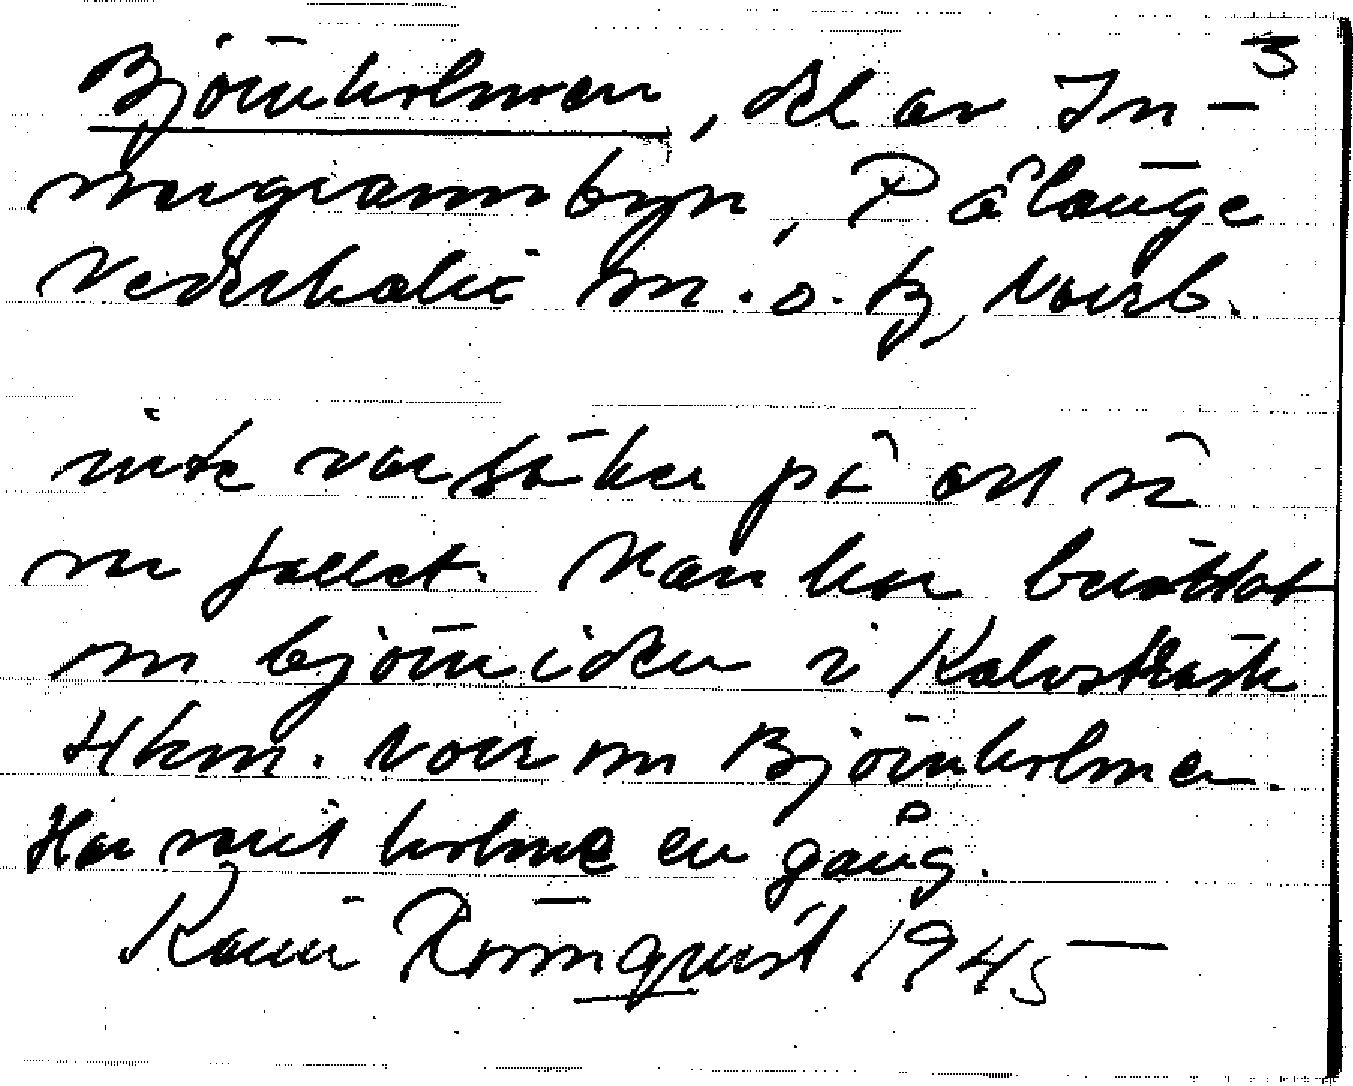 3
Björnholmen, del av In-
nergrannbyn, Pålänge
Nederkalix m. o. tg, Norrb.
inte var säker på att så
var fallet. Man har berättat
om björniden i Kalvsträsk
4 km. Norr om Björnholmen.
Har varit holme en gång.
Karin Rönnqvist 1945